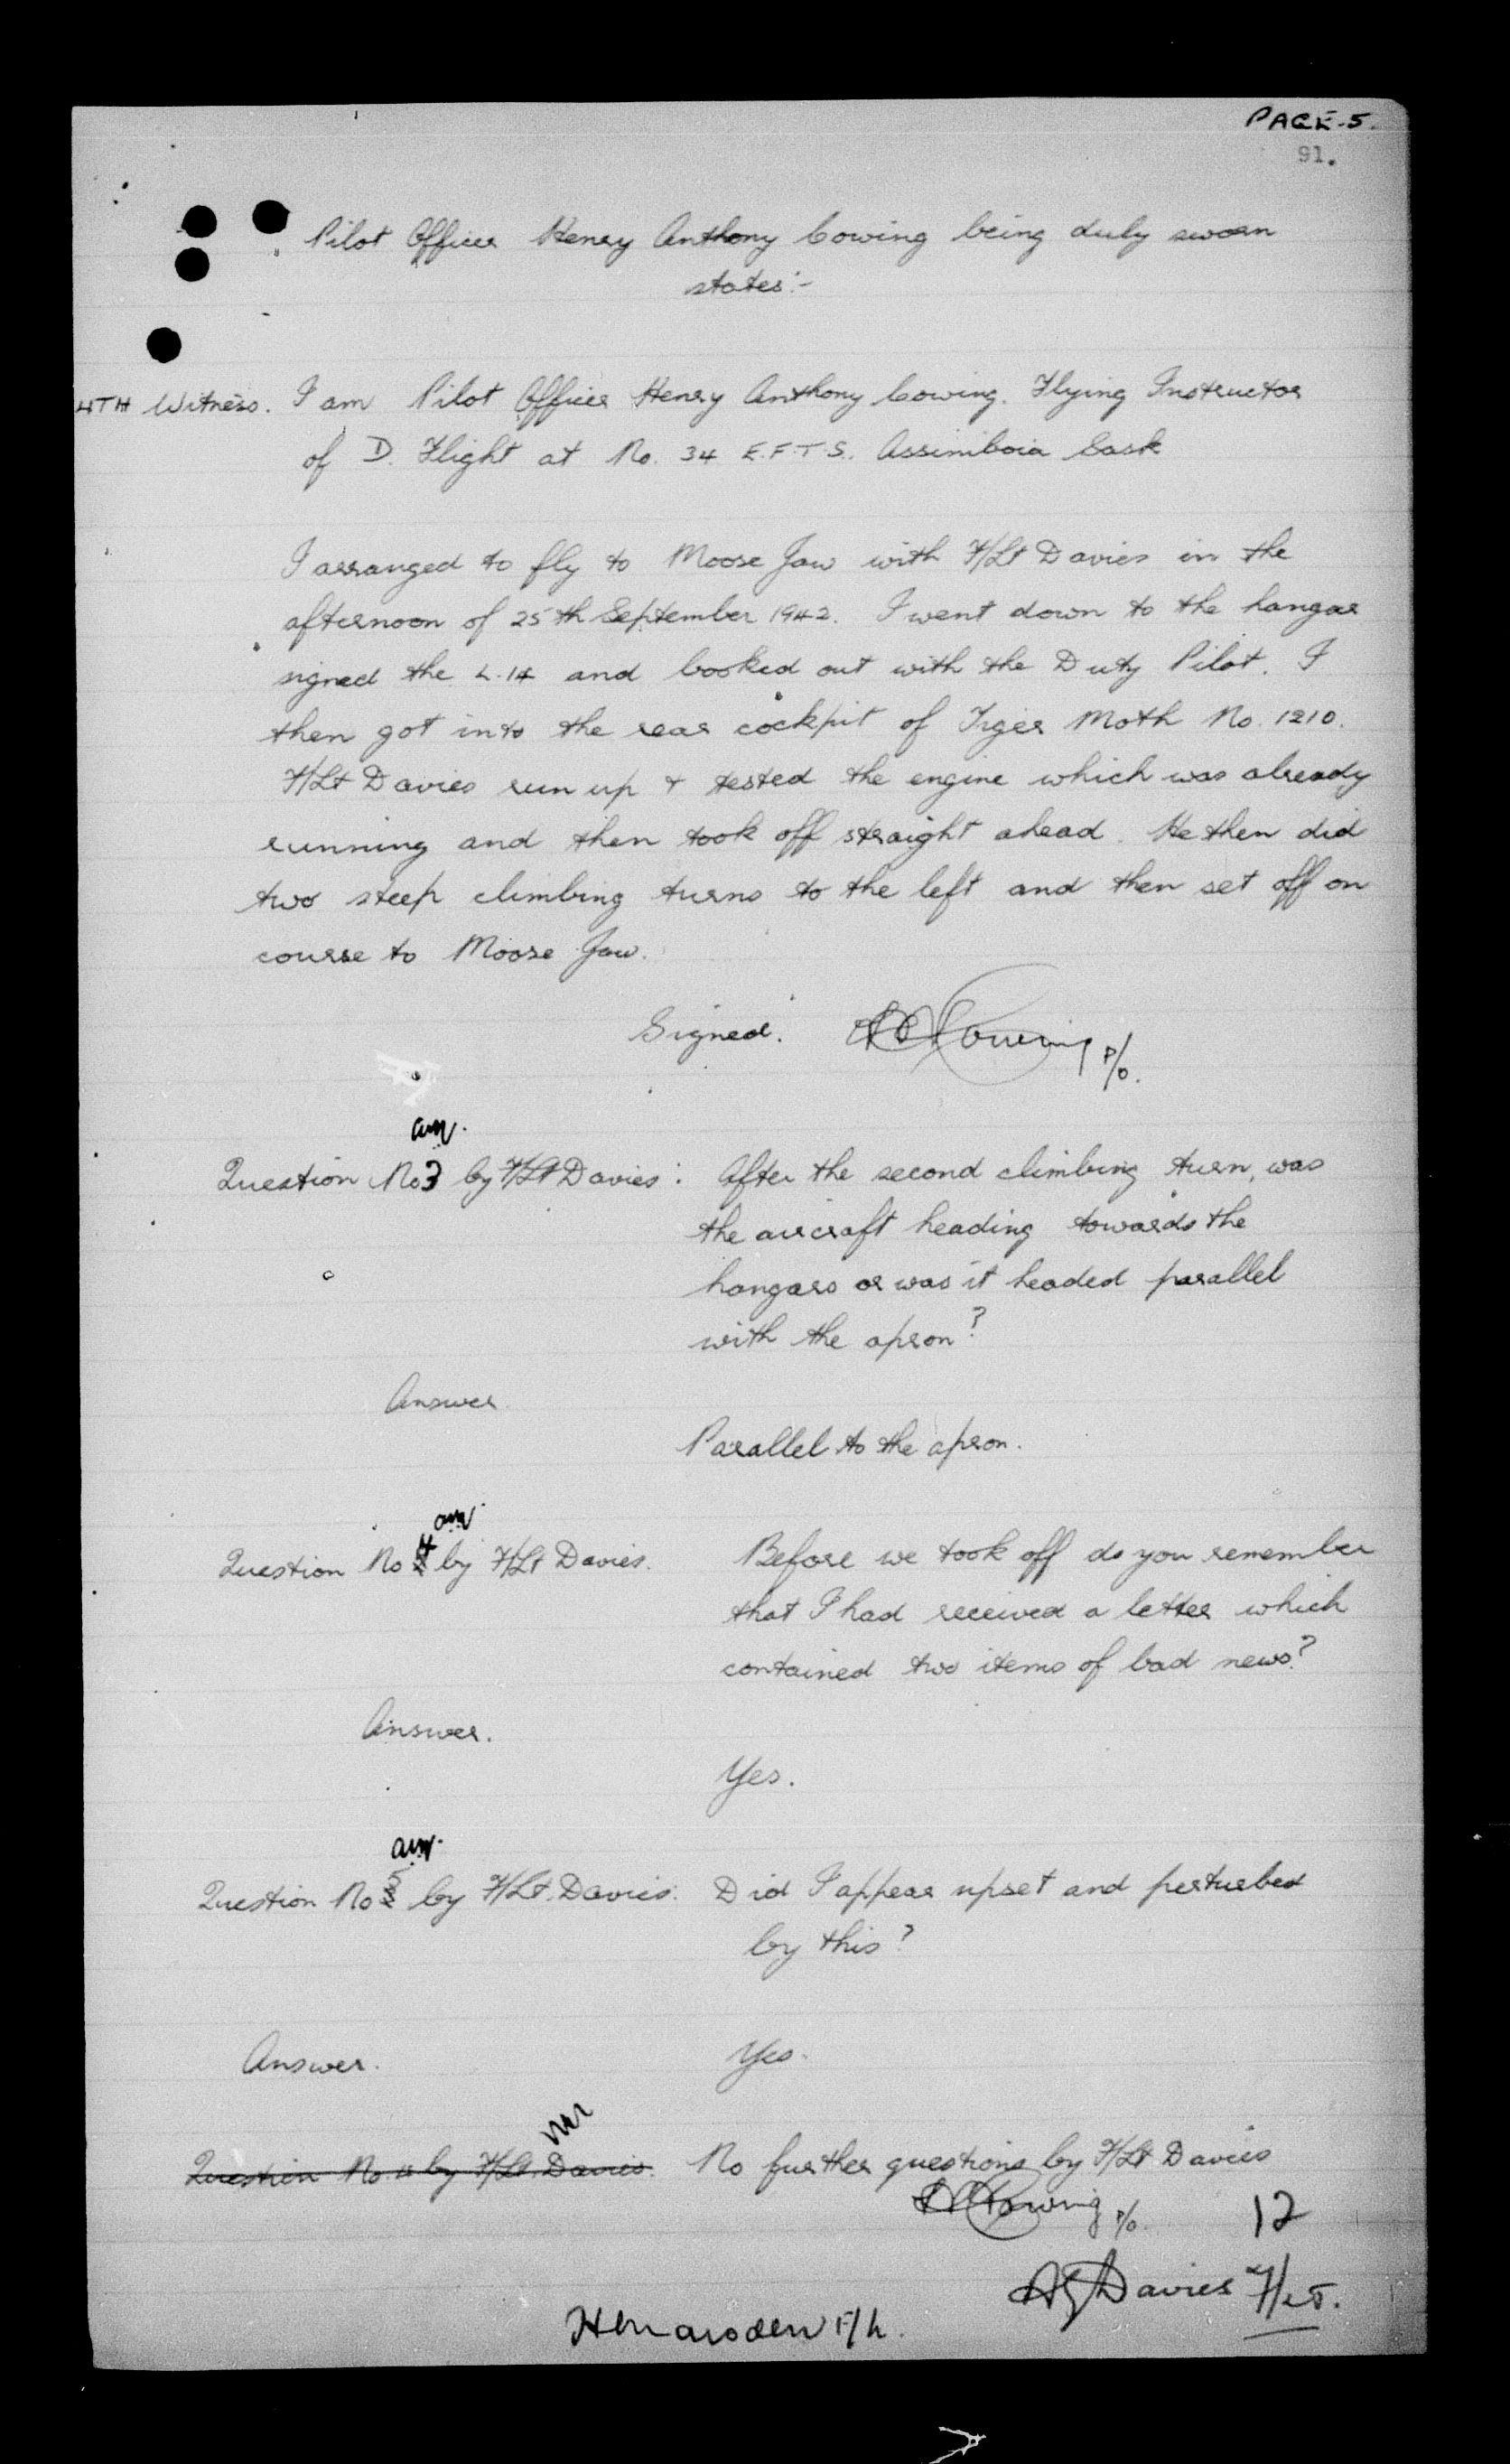 PAGE-5.
91.
Pilot Officer Henry Anthony Cowing being duly sworn
states:-
4TH Witness. I am Pilot Officer Henry Anthony Cowing. Flying Instructor
of D. Flight at No. 34 E.F.T.S. Assiniboia Sask
I arranged to fly to Moose Jaw with F/Lt Davies in the
afternoon of 25th September 1942. I went down to the hangar
signed the L.14 and booked out with the Duty Pilot. I
then got into the rear cockpit of Tiger Moth No. 1210.
F/Lt Davies run up & tested the engine which was already
running and then took off straight ahead. He then did
two steep climbing turns to the left and then set off on
course to Moose Jaw.
Signed. HACowing P/O.
Question No 3 by F/Lt Davies: After the second climbing turn, was
the aircraft heading towards the
hangars or was it headed parallel
with the apron?
Answer
Parallel to the apron.
Question No 4 by F/Lt Davies. Before we took off do you remember
that I had received a letter which
contained two items of bad news?
Answer.
Yes.
Question No 5 by F/Lt. Davies. Did I appear upset and perturbed
by this?
Answer. Yes.
Question No. 4 by F/Lt. Davies. No further questions by F/Lt Davies
HACowing P/O.
12
Davies F/LT.
F/L.